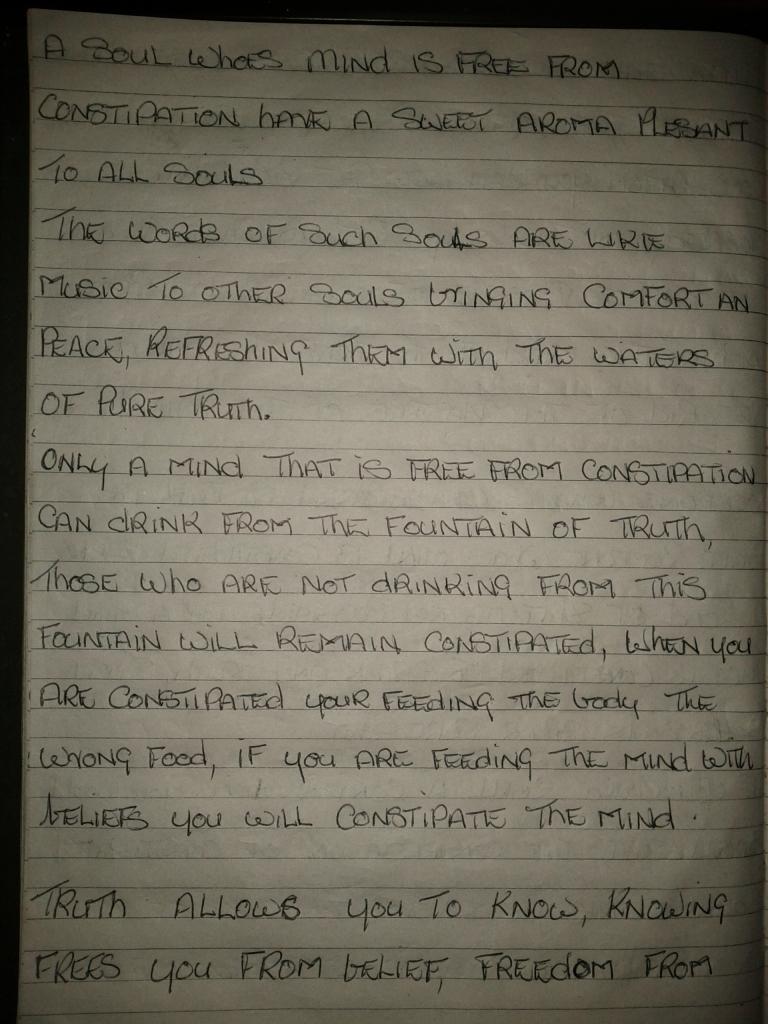 A SOUL WHOES MIND IS FREE FROM
CONSTIPATION HAVE A SWEET AROMA PLESANT
TO ALL SOULS
THE WORDS OF SUCH SOULS ARE LIKE
MUSIC TO OTHER SOULS BRINGING COMFORT AN
PEACE, REFRESHING THEM WITH THE WATERS
OF PURE TRUTH.
ONLY A MIND THAT IS FREE FROM CONSTIPATION
CAN DRINK FROM THE FOUNTAIN OF TRUTH,
THOSE WHO ARE NOT DRINKING FROM THIS
FOUNTAIN WILL REMAIN CONSTIPATED, WHEN YOU
ARE CONSTIPATED YOUR FEEDING THE BODY THE
WRONG FOOD, IF YOU ARE FEEDING THE MIND WITH
BELIEFS YOU WILL CONSTIPATE THE MIND.
TRUTH ALLOWS YOU TO KNOW, KNOWING
FREES YOU FROM BELIEF, FREEDOM FROM